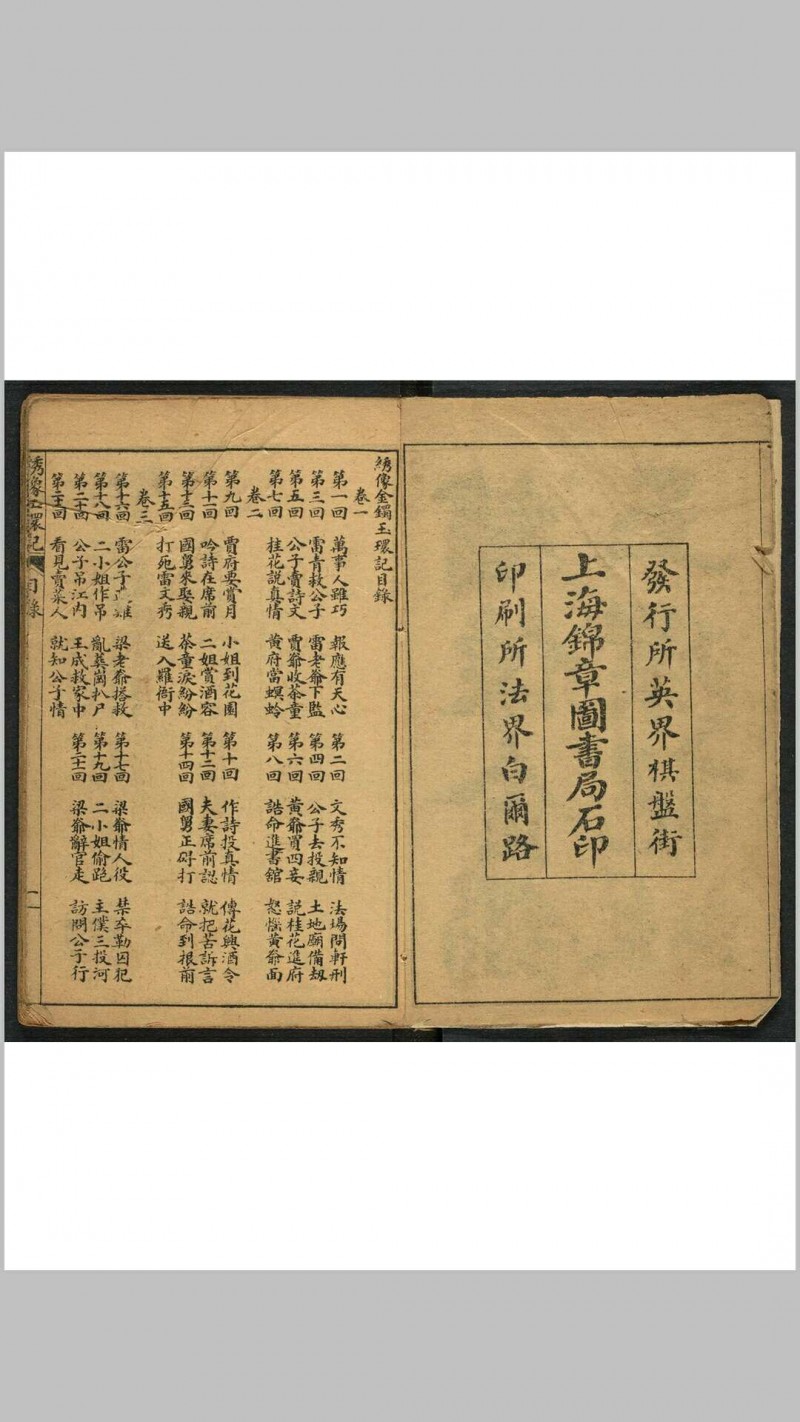 發行所英界棋盤街
上海錦章圖書局石印
印刷所法界白爾路
繡像金鐲玉環記目錄
卷一
第一回 萬事人難巧 報應有天心 第二回 文秀不知情 法場問斬刑
第三回 雷青救公子 雷老爺下監 第四回 公子去投親 土地廟備劫
第五回 公子賣詩文 賈爺收茶童 第六回 黃爺買四妾 説桂花進府
第七回 桂花説真情 黃府當螟蛉 第八回 誥命進書館 怒惱黃爺面
卷二
第九回 賈府要賞月 小姐到花園 第十回 作詩投真情 傳花與酒令
第十一回 吟詩在席前 二姐賞酒容 第十二回 夫妻席前認 就把苦訴言
第十三回 國舅來娶親 茶童淚紛紛 第十四回 國舅正好打 誥命到根前
第十五回 打死雷文秀 送入羅衙中
卷三
第十六回 雷公子 難 梁老爺搭救 第十七回 梁爺情人役 禁卒勒囚犯
第十八回 二小姐作吊 亂葬崗扒尸 第十九回 二小姐偷跑 主僕三投河
第二十回 公子吊江內 王成救家中 第二十一回 梁爺辭官走 訪問公子行
第二十二回 看見賣菜人 就知公子情
繡像玉環記 目錄 一